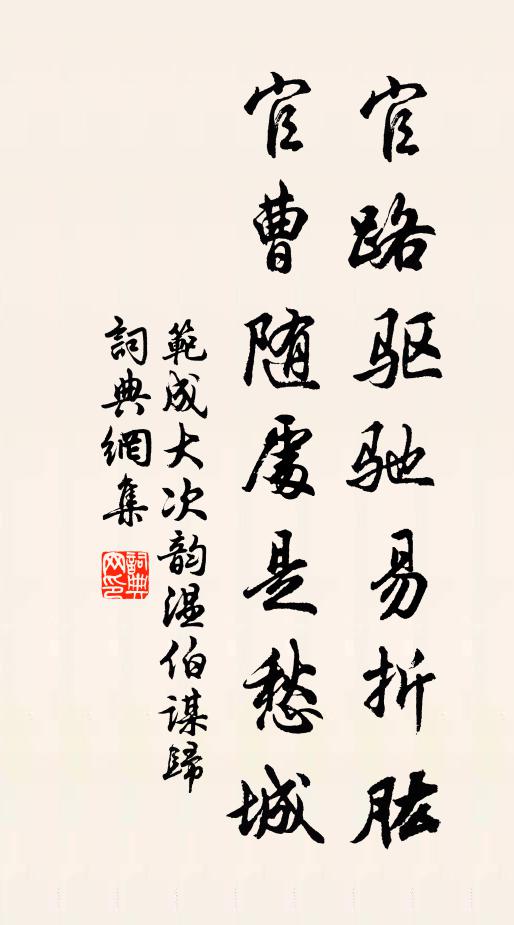 官路驱驰易折肱
官曹随處是愁城
範成大次韵温伯謀歸
詞典網集
詞典
网印